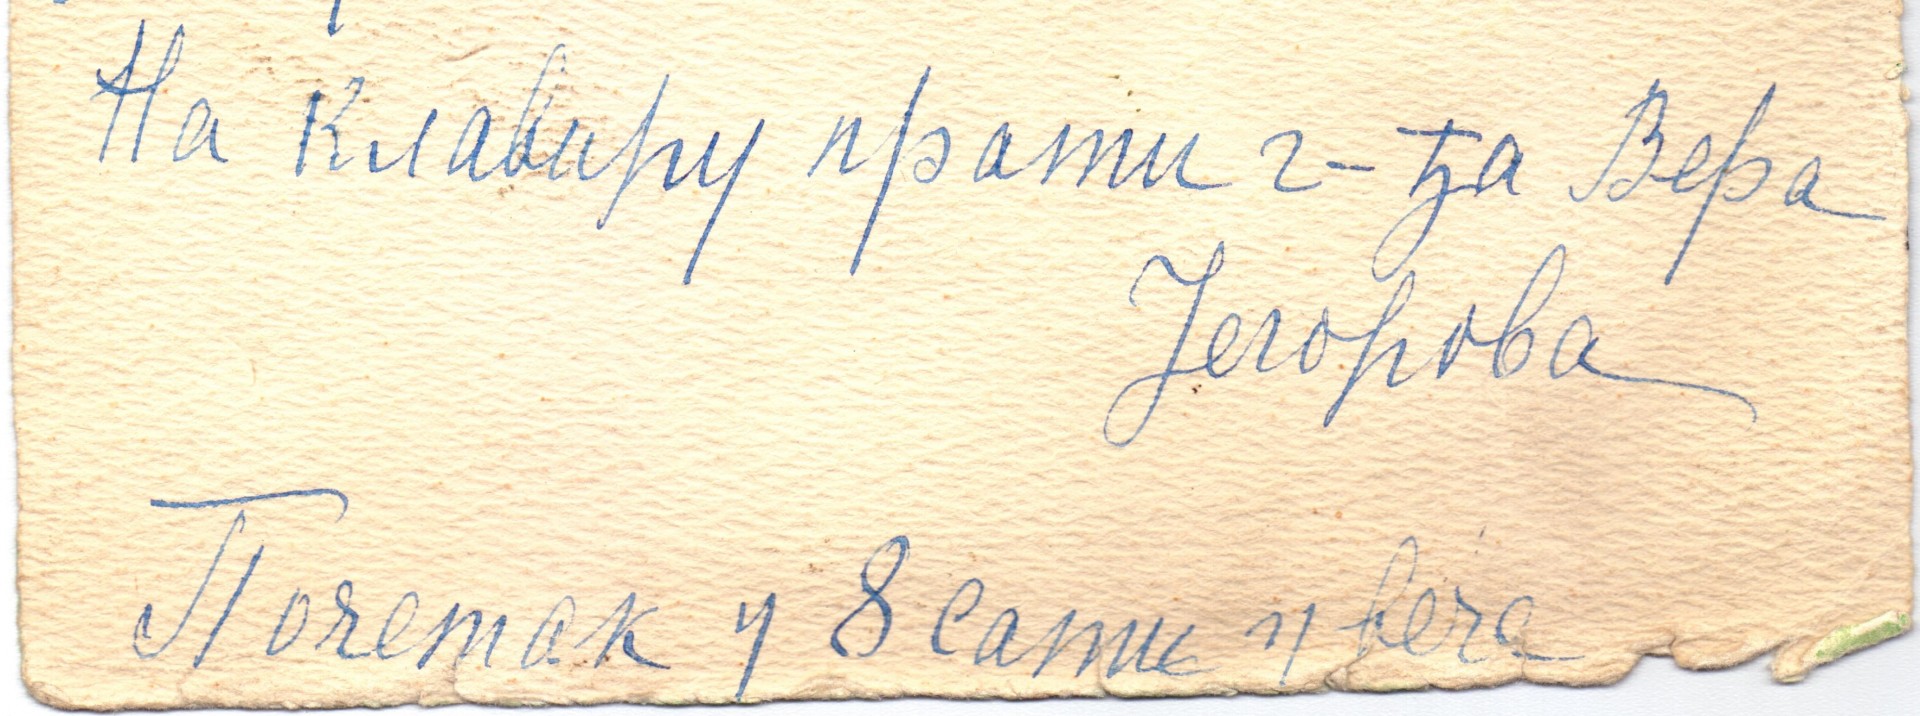 На клавиру прати г-ђа Вера
Јегорова
Почетак у 8 сати у вече